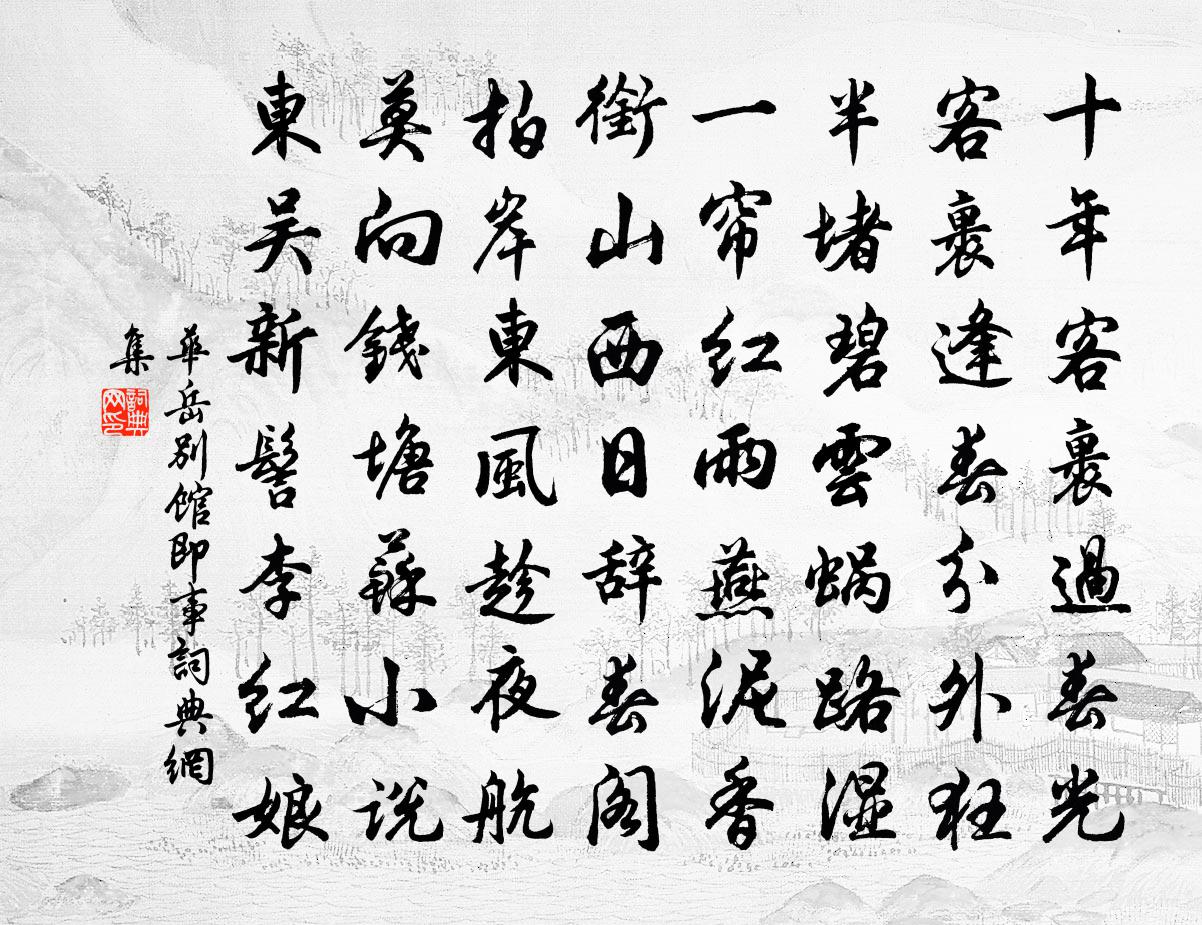 十年客裏過春光
客裏逢春分外狂
半堵碧雲蝸路湿
一帘红雨燕泥香
銜山西日辞春阁
拍岸東風趁夜航
莫向錢塘蘇小说
東吴新髻李红娘
華岳別館即事詞典網
集
詞典网印